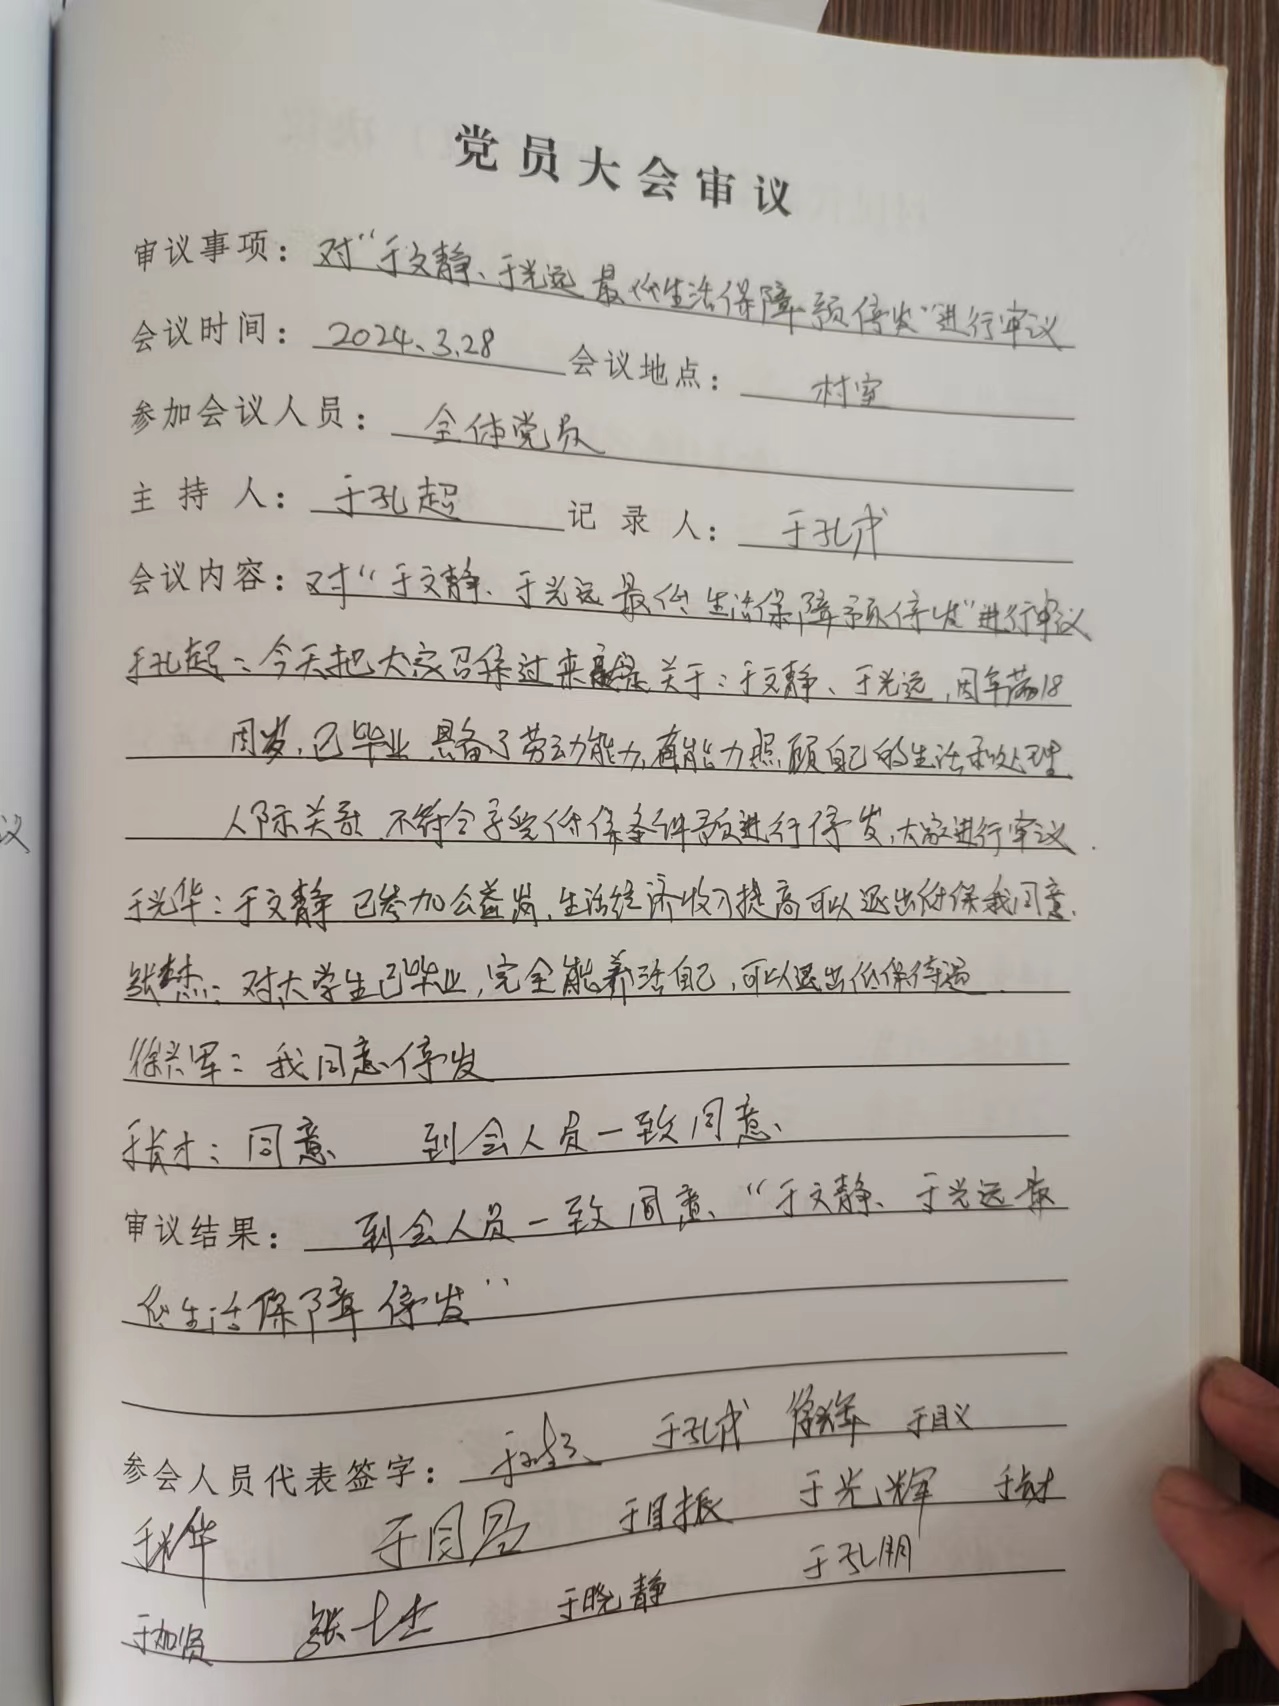 党员大会审议
审议事项：对“于文静、于光远最低生活保障预停发”进行审议
会议时间：2024.3.28 会议地点：村室
参加会议人员：全体党员
主持人：于孔超 记录人：于孔成
会议内容：对“于文静、于光远最低生活保障预停发”进行审议
于孔超：今天把大家召集过来 关于：于文静、于光远，因年满18
周岁，已毕业具备了劳动能力，有能力照顾自己的生活和处理
人际关系 不符合享受低保条件预进行停发，大家进行审议.
于光华：于文静已参加公益岗，生活经济收入提高可以退出低保我同意.
张杰：对大学生已毕业，完全能养活自己，可以退出低保待遇.
徐兴军：我同意停发
于肯才：同意 到会人员一致同意.
审议结果：到会人员一致同意“于文静、于光远最
低生活保障停发”
参会人员代表签字： 于孔成 于目义
于光华 于同 于目振 于光辉
于加贤 张士杰 于晓静 于孔朋
议